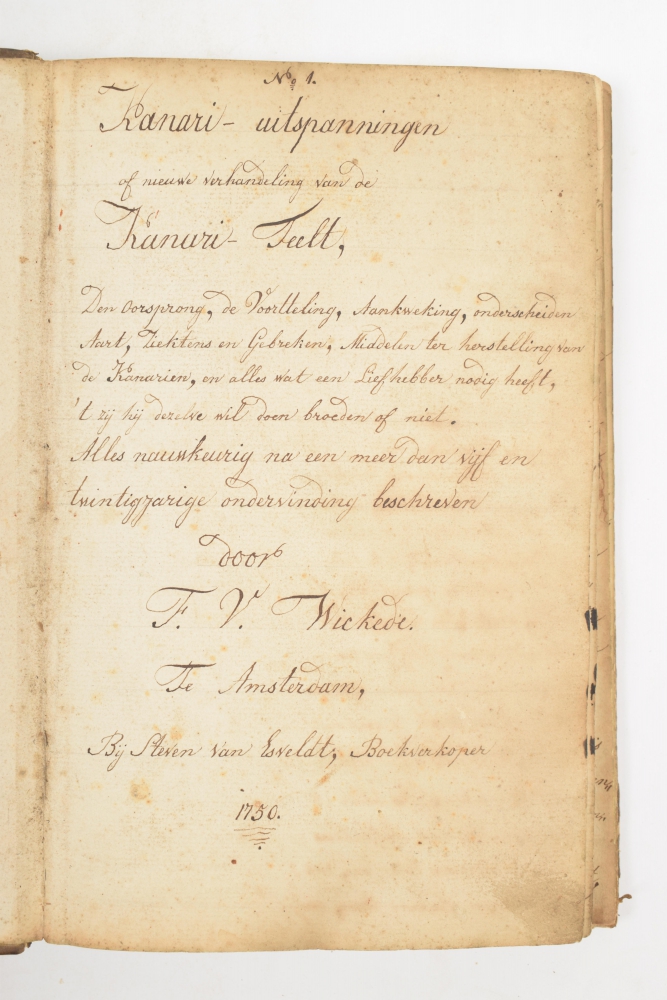 No 1.
Kanari- uitspanningen
of nieuwe verhandeling van de
Kanari- Teelt,
Den oorsprong, de Voortteling, Aankweking, onderscheiden
Aart, Ziektens en Gebreken, Middelen ter herstelling van
de Kanarien, en alles wat een Liefhebber nodig heeft,
't zij hij dezelve wil doen broeden of niet.
Alles nauwkeurig na een meer dan vijf en
twintigjarige ondervinding beschreven
door
F. V. Wickede.
Te Amsterdam,
Bij Steven van Esveldt, Boekverkoper
1750.